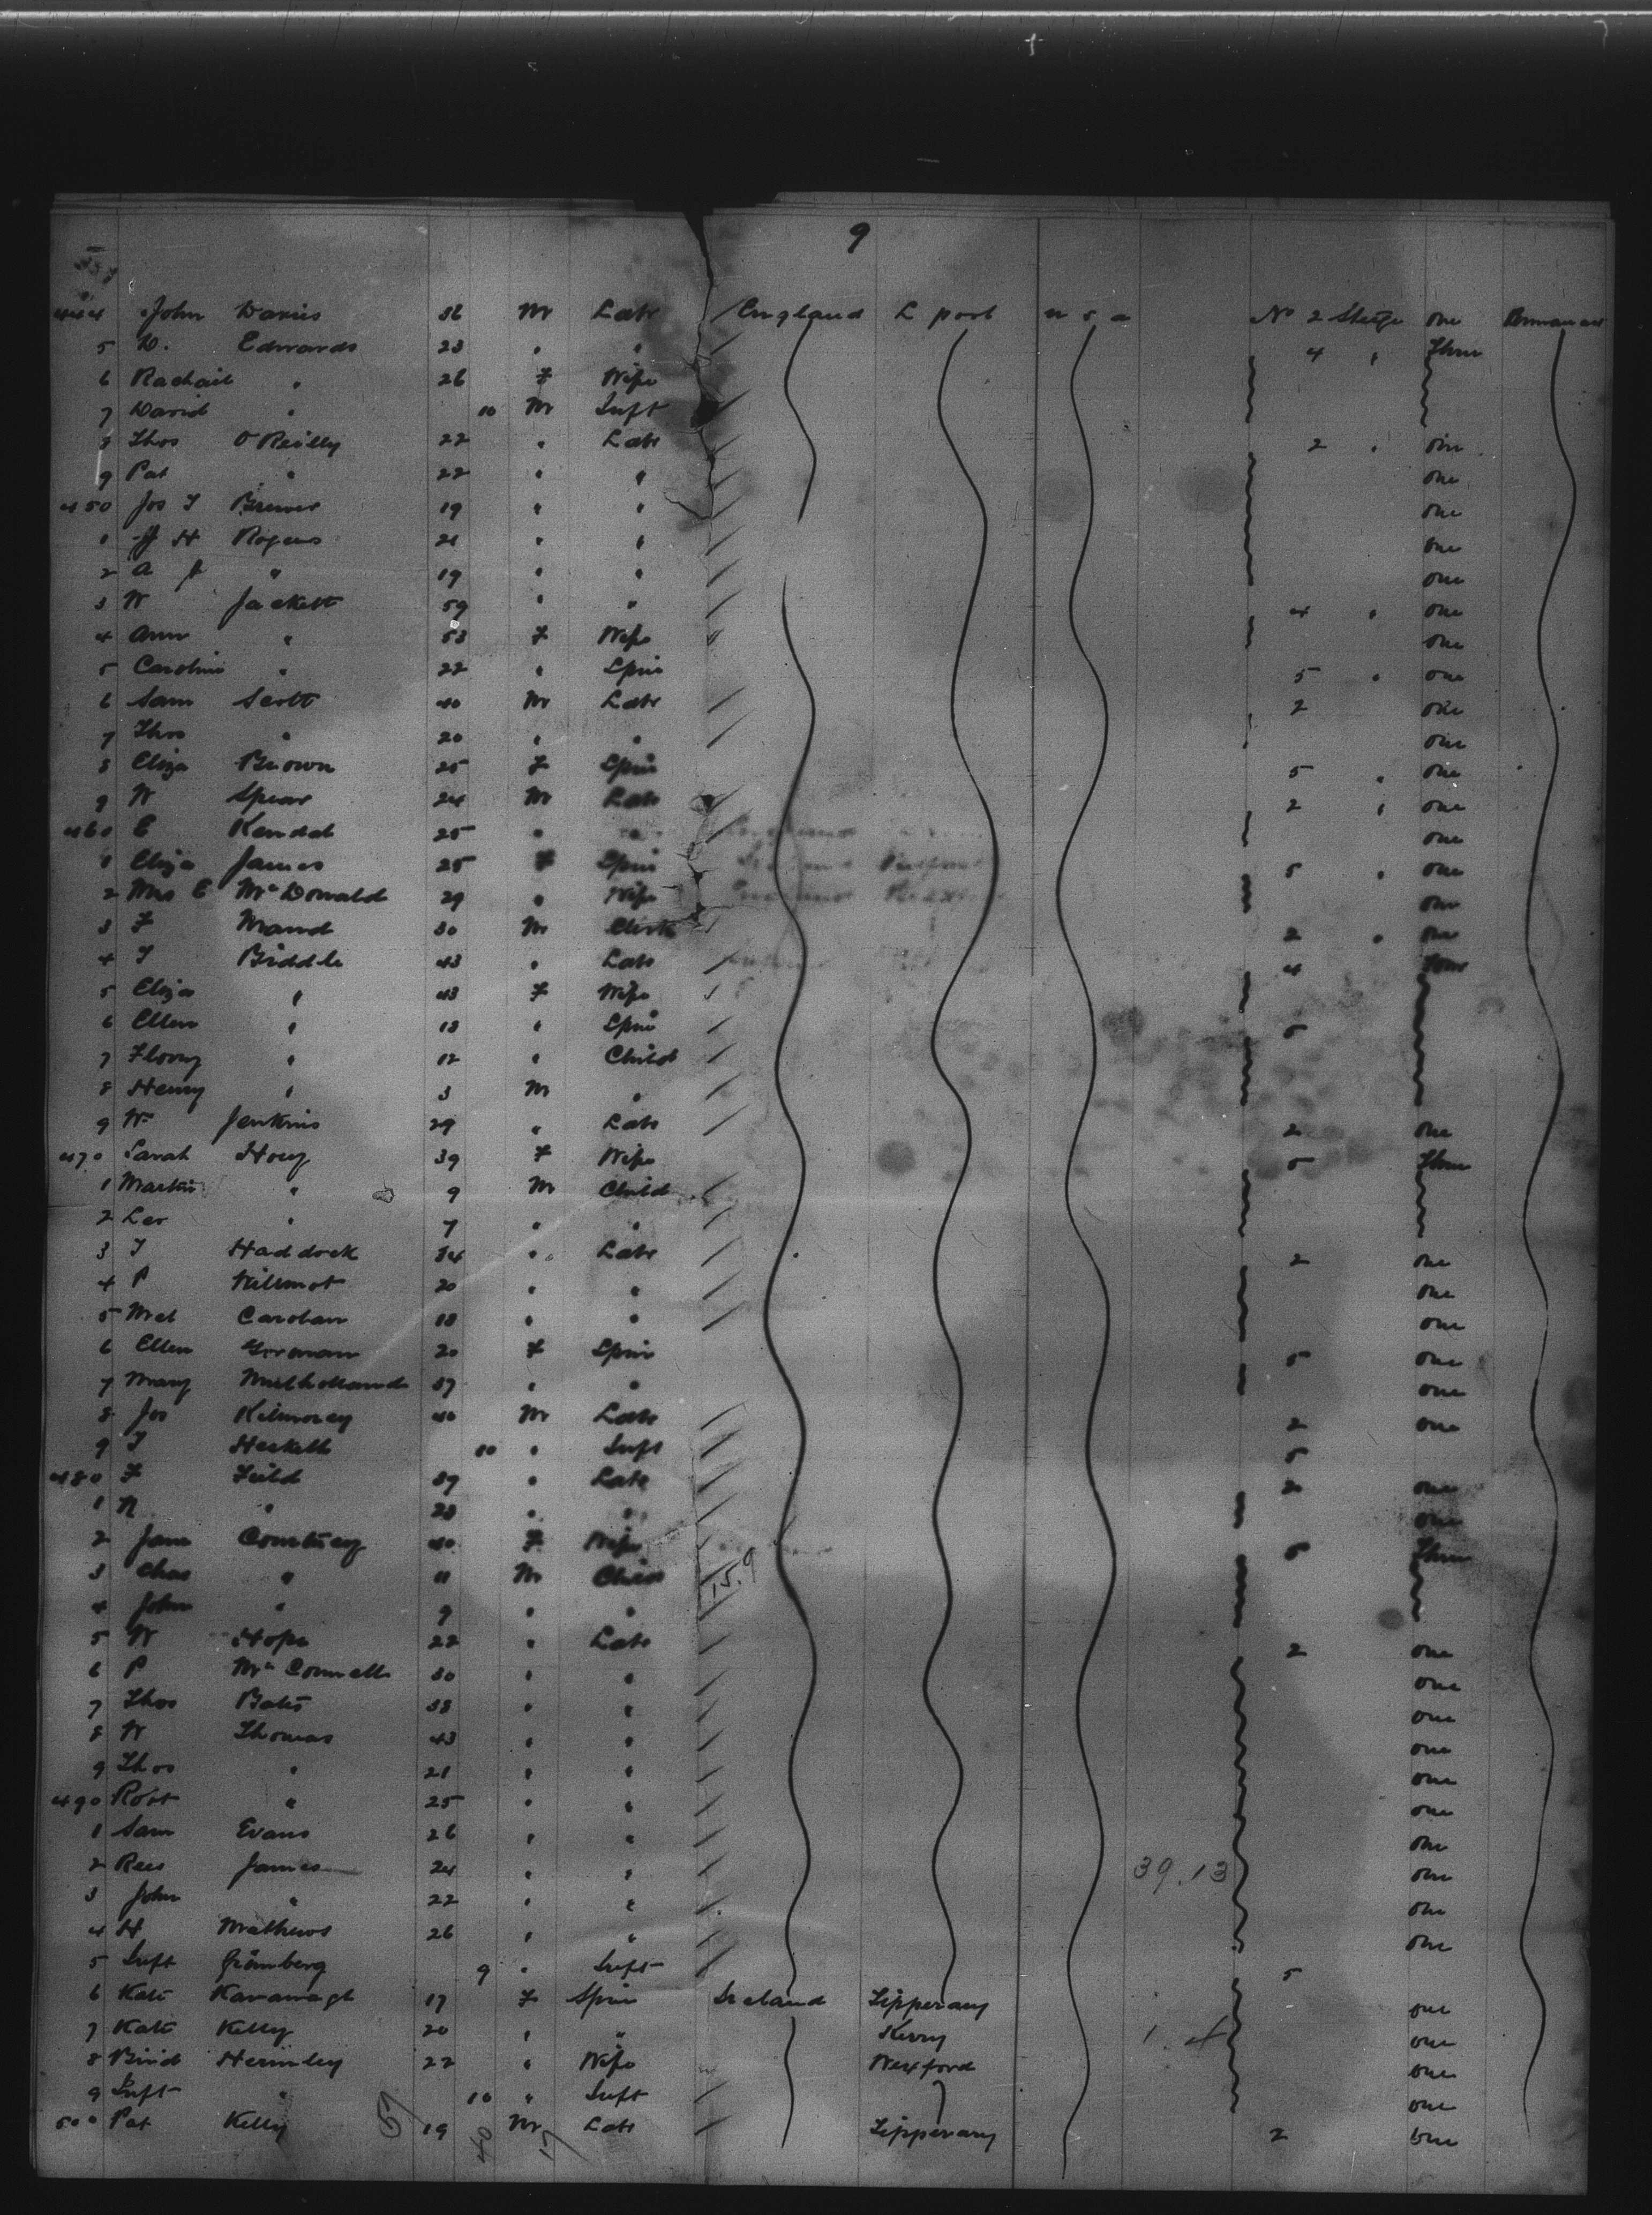 9
444 John Davies 36 M Labr England L pool U S A No 2 Steige one Permanent
5 D. Edwards 23 " " 4 " Three
6 Rachail " 26 F Wife
7 David " 10 M Inft
8 Thos O'Reilly 22 " Labr 2 " one
9 Pat " 22 " " one
450 Jos T Brewer 19 " " one
1 J H Rogers 21 " " one
2 A J " 19 " " one
3 W Jackett 59 " " 4 " one
4 Ann " 53 F Wife one
5 Caroline " 22 " Spin 5 " one
6 Sam Scott 40 M Labr 2 one
7 Thos " 20 " " one
8 Eliza Brown 25 F Spin 5 " one
9 W Spear 24 M Labr 2 " one
460 E Kendal 25 " " one
1 Eliza James 25 F Spin 5 " one
2 Mrs E McDonald 29 " Wife one
3 F Maund 30 M Clerk 2 " one
4 T Biddle 43 " Labr 4 Four
5 Eliza " 43 F Wife
6 Ellen " 18 " Spin 5
7 Florry " 12 " Child
8 Henry " 3 M "
9 Wm Jenkins 29 " Labr 2 one
470 Sarah Hoey 39 F Wife 5 Three
1 Martin " 9 M Child
2 Leo " 7 " "
3 T Haddock 34 " Labr 2 one
4 P 20 " " one
5 Mcl Carolan 18 " " one
6 Ellen Gorman 20 F Spin 5 one
7 Mary Mulholland 37 " " one
8 Jos Kilmorey 40 M Labr 2 one
9 T Hesketh 10 " Inft 5
480 F Feild 37 " Labr 2 one
1 N " 23 " " one
2 Jane Courtney 40 F Wife 5 Three
3 Chas " 11 M Child 15.9
4 John " 9 " "
5 W Hope 22 " Labr 2 one
6 P McConnell 30 " " one
7 Thos Bates 38 " " one
8 W Thomas 43 " " one
9 Thos " 21 " " one
490 Robt " 25 " " one
1 Sam Evans 26 " " one
2 Rees James 24 " " 39.13 one
3 John " 22 " " one
4 H Mathews 26 " " one
5 Inft Grünberg 9 " Inft 5
6 Kate Kavanagh 17 F Spin Ireland Tipperary one
7 Kate Kelly 20 " " Kerry 1.4 one
8 Brid 22 " Wife Wexford one
9 Inft " 10 " Inft one
500 Pat Kelly 19 M Labr Tipperary 2 one
57 40 17